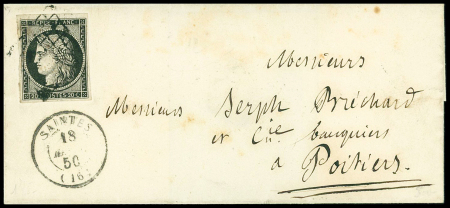 REPUB. FRANC.
20 POSTES 20 C
Messieurs
Messieurs Serph Prichard
et Cie banquiers
à Poitiers.
SAINTES
18
50
(16)